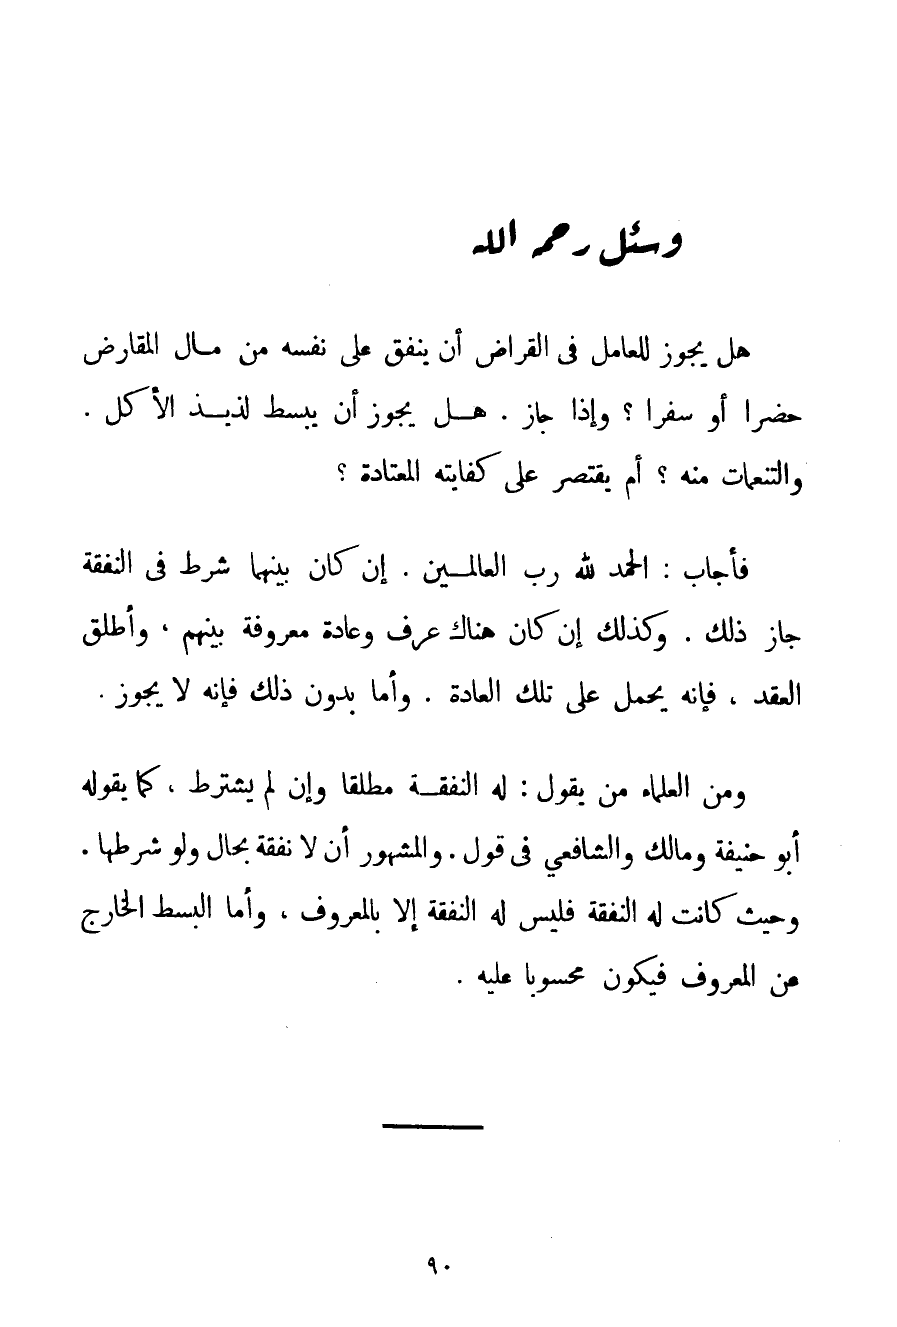 وسئل رحمه الله
هل يجوز للعامل فى القراض أن ينفق على نفسه من مال المقارض
حضرا أو سفرا ؟ وإذا جاز . هل يجوز أن يبسط لذيذ الأكل .
والتنعمات منه ؟ أم يقتصر على كفايته المعتادة ؟
فأجاب : الحمد لله رب العالمين . إن كان بينهما شرط فى النفقة
جاز ذلك . وكذلك إن كان هناك عرف وعادة معروفة بينهم ، وأطلق
العقد ، فإنه يحمل على تلك العادة . وأما بدون ذلك فإنه لا يجوز .
ومن العلماء من يقول : له النفقة مطلقا وإن لم يشترط ، كما يقوله
أبو حنيفة ومالك والشافعي فى قول . والمشهور أن لا نفقة بحال ولو شرطها .
وحيث كانت له النفقة فليس له النفقة إلا بالمعروف ، وأما البسط الخارج
عن المعروف فيكون محسوبا عليه .
٩٠